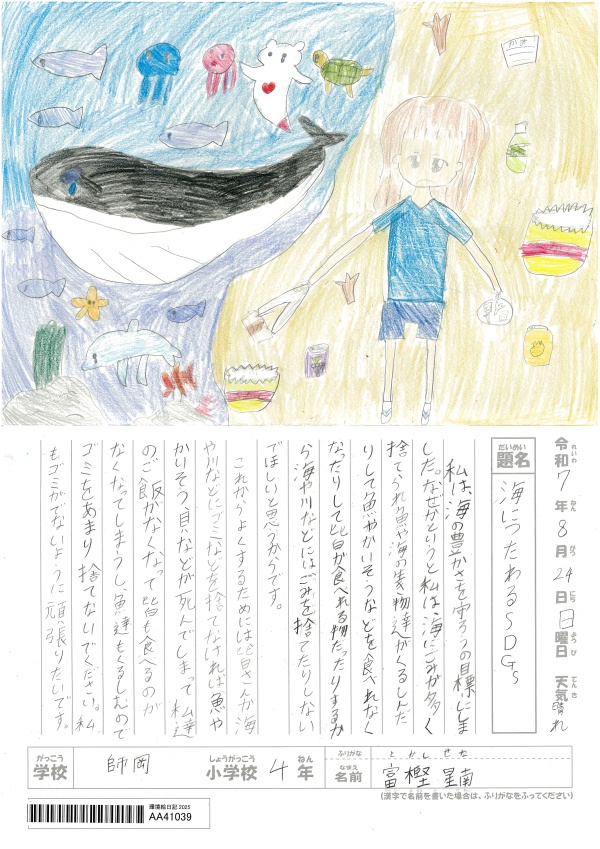 かさ
令和7年8月24日日曜日 天気晴れ
れいわ ねん がつ にち ようび てんき
だいめい
題名 海につたわるSDGs
私は、海の豊かさを守ろうの目標にしま
した。なぜかというと私は、海にごみが多く
捨てられ魚や海の生き物達がくるしんだ
りして魚やかいそうなどを食べれなく
なったりして皆が食べれる物だったりするか
ら海や川などにはごみを捨てたりしない
でほしいと思うからです。
これからよくするためには皆さんが海
や川などにごみなどを捨てなければ魚や
かいそう、貝などが死んでしまって私達
のご飯がなくなって皆も食べるのが
なくなってしまうし魚達もくるしむので
ゴミをあまり捨てないでください。私
もゴミがでないように頑張りたいです。
がっこう しょうがっこう ねん ふりがな とがしせな
学校 師岡 小学校 4年 なまえ 名前 富樫星南
(漢字で名前を書いた場合は、ふりがなをふってください)
環境絵日記 2025
AA41039